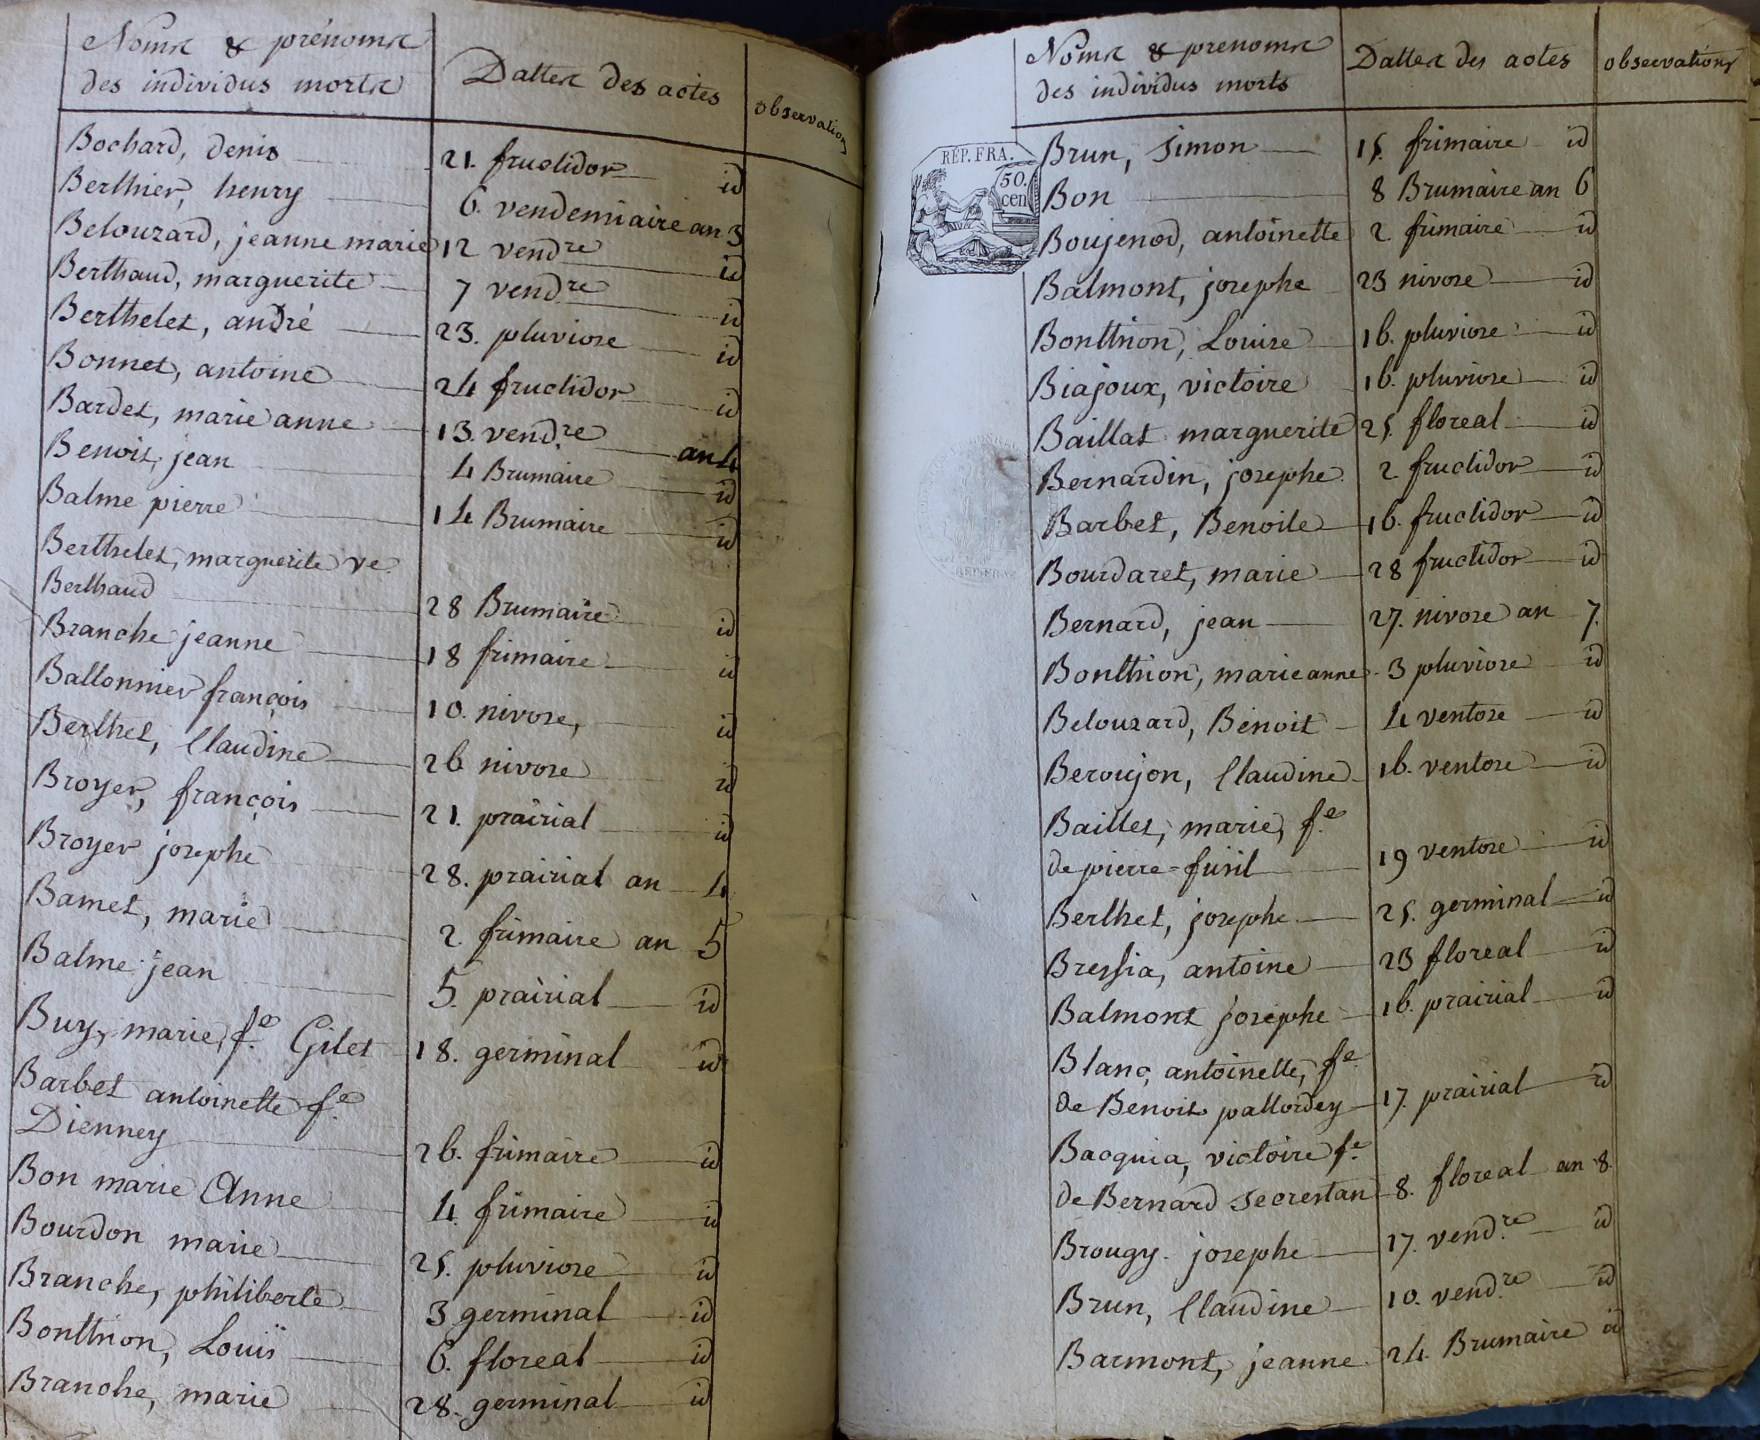 Noms & prénoms
des individus morts
Dattes des actes
observations
Bochard, denis 21. fructidor id
Berthier, henry 6. vendemiaire an 3
Belouzard, jeanne marie 12 vend.re id
Berthaud, marguerite 7 vend.re id
Berthelet, andré 23. pluviose id
Bonnet, antoine 24 fructidor id
Bardet, marie anne 13. vend.re an 4
Benoit, jean 4 Brumaire id
Balme pierre 14 Brumaire id
Berthelet, marguerite ve
Berthaud 28 Brumaire id
Branche jeanne 18 frimaire id
Ballonnier françois 10. nivose, id
Berthet, Claudine 26 nivose id
Broyer, françois 21. prairial id
Broyer josephe 28. prairial an 4
Bamet, marie 2. frimaire an 5
Balme jean 5. prairial id
Buy, marie, f.e Gilet 18. germinal id
Barbet antoinette f.e
Dienney 26. frimaire id
Bon marie Anne 4. frimaire id
Bourdon marie 25. pluviose id
Branche, philiberte 3 germinal id
Bonthion, Louis 6. floreal id
Branche, marie 28. germinal id
Noms & prenoms
des individus morts
Dattes des actes
observations
RÉP. FRA.
50.
cen
Brun, Simon 15. frimaire id
Bon 8 Brumaire an 6
Boujenod, antoinette 2. frimaire id
Balmont, josephe 23 nivose id
Bonthion, Louise 16. pluviose id
Biajoux, victoire 16. pluviose id
Baillat marguerite 25. floreal id
Bernardin, josephe 2. fructidor id
Barbet, Benoite 16. fructidor id
Bourdaret, marie 28 fructidor id
Bernard, jean 27. nivose an 7.
Bonthion, marie anne 3 pluviose id
Belouzard, Benoit 4 ventose id
Beroujon, Claudine 16. ventose id
Baillet, marie, f.e
de pierre=fusil 19 ventose id
Berthet, josephe 25. germinal id
Bressia, antoine 23 floreal id
Balmont josephe 16. prairial id
Blanc, antoinette, f.e
de Benoit pallordey 17. prairial id
Bacquia, victoire f.e
de Bernard Secrestan 8. floreal an 8.
Brougy. josephe 17. vend.re id
Brun, Claudine 10. vend.re id
Barmont, jeanne 24. Brumaire id